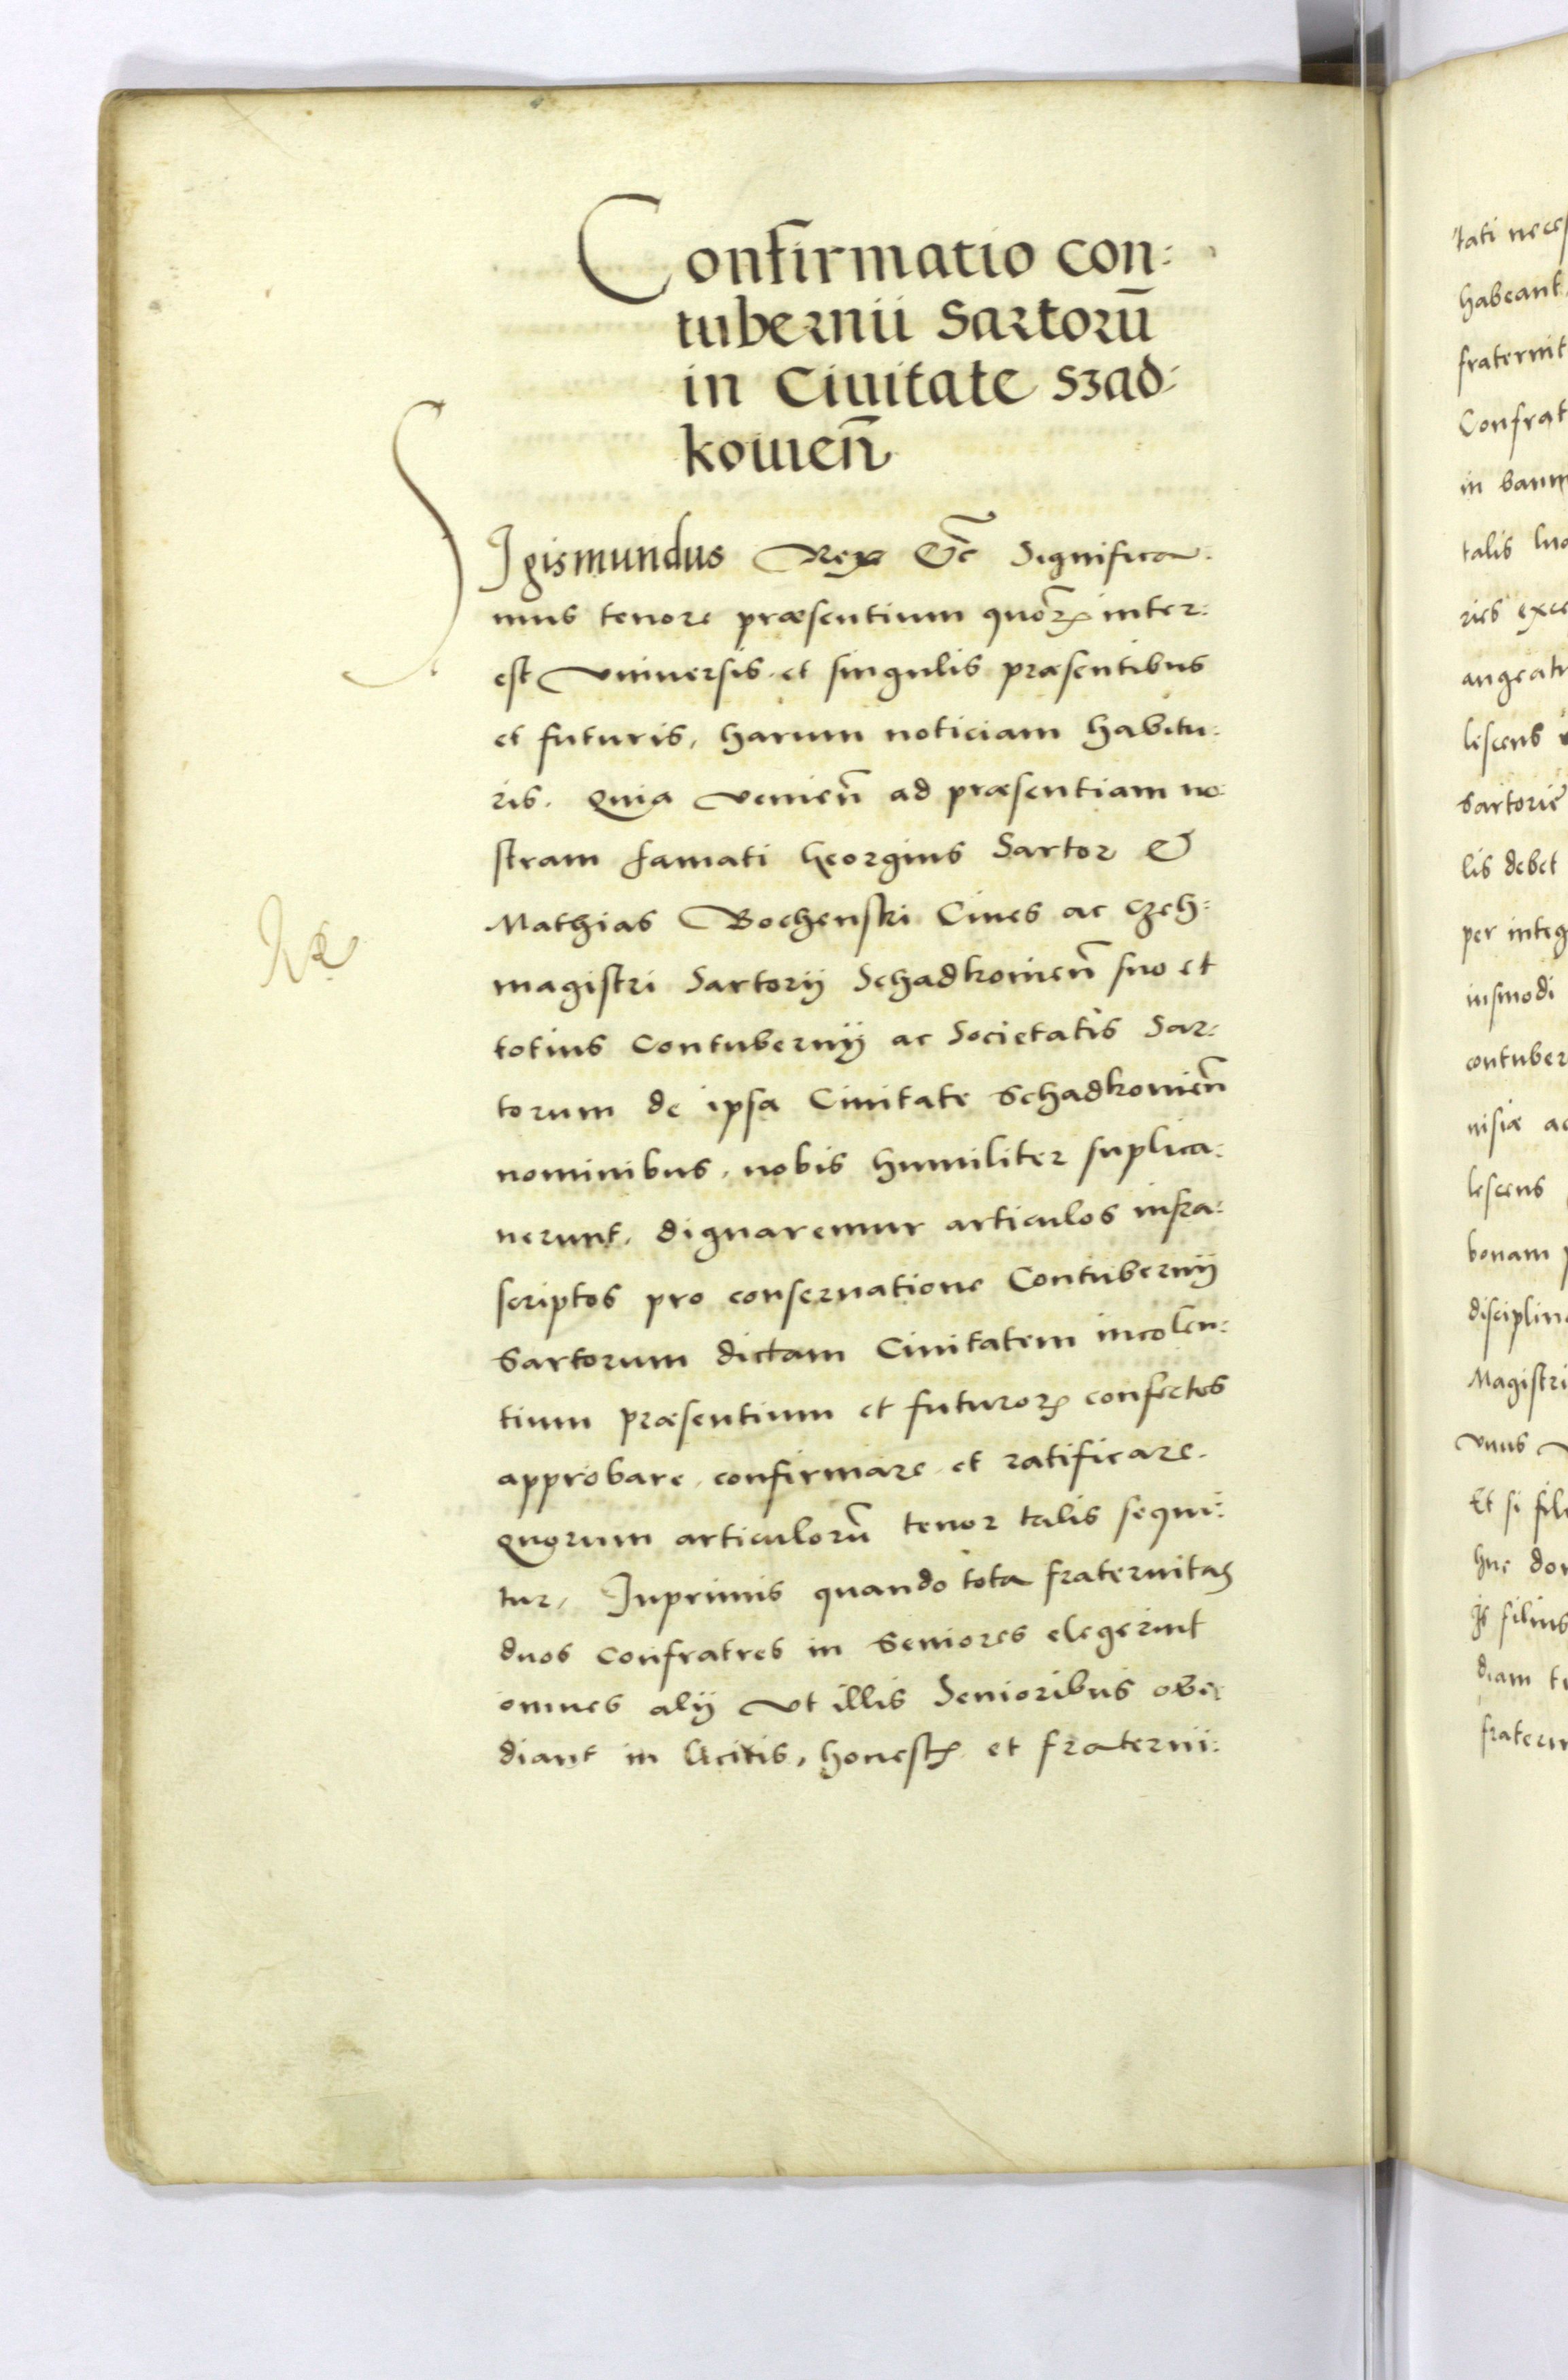 Confirmatio con:
tubernii Sartorū
in Ciuitate Szad:
kouień
SIgismundus Rex &c̃ Significa:
mus tenore præsentium quoꝝ inter:
est Vniuersis et singulis præsentibus
et futuris, harum noticiam habitu:
ris. Quia venień ad præsentiam no:
stram famati Georgius Sartor &
Mathias Bochenski Ciues ac Czeh:
magistri Sartorij Schadkouień suo et
totius Contubernij ac Societatis Sar:
torum de ipsa Ciuitate Schadkouień
nominibus, nobis humiliter suplica:
uerunt, dignaremur articulos infra:
scriptos pro conseruatione Contubernij
Sartorum dictam Ciuitatem incolen:
tium præsentium et futuroꝝ confectos
approbare, confirmare et ratificare.
Quorum articulorū tenor talis sequi:
tur, Inprimis quando tota fraternitas
duos Confratres in Seniores elegerint
omnes alij vt illis Senioribus obe:
diant in licitis, honestꝭ et fraterni:
tati neces
habeant
fraternit
Confrat
in
talis
ries exce
augeat
lescens
Sartorie
lis debet
per integ
iusmodi
contuber
nisiæ ac
lescens
bonam
disciplin
Magistri
vnus
Et si fil
huc do
is filius
diam t
fratern